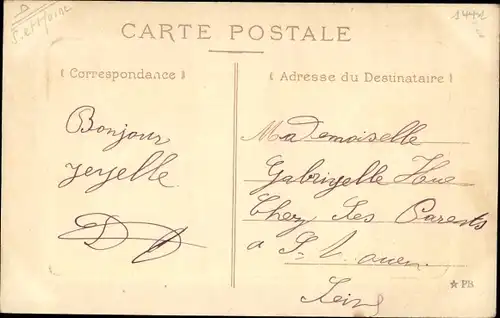 CARTE POSTALE
( Correspondance )
( Adresse du Destinataire )
Bonjour
yeyelle
D D
Mademoiselle
Gabriyelle Hue
Chez Ses Parents
a St Ouen
Seine
★ PB